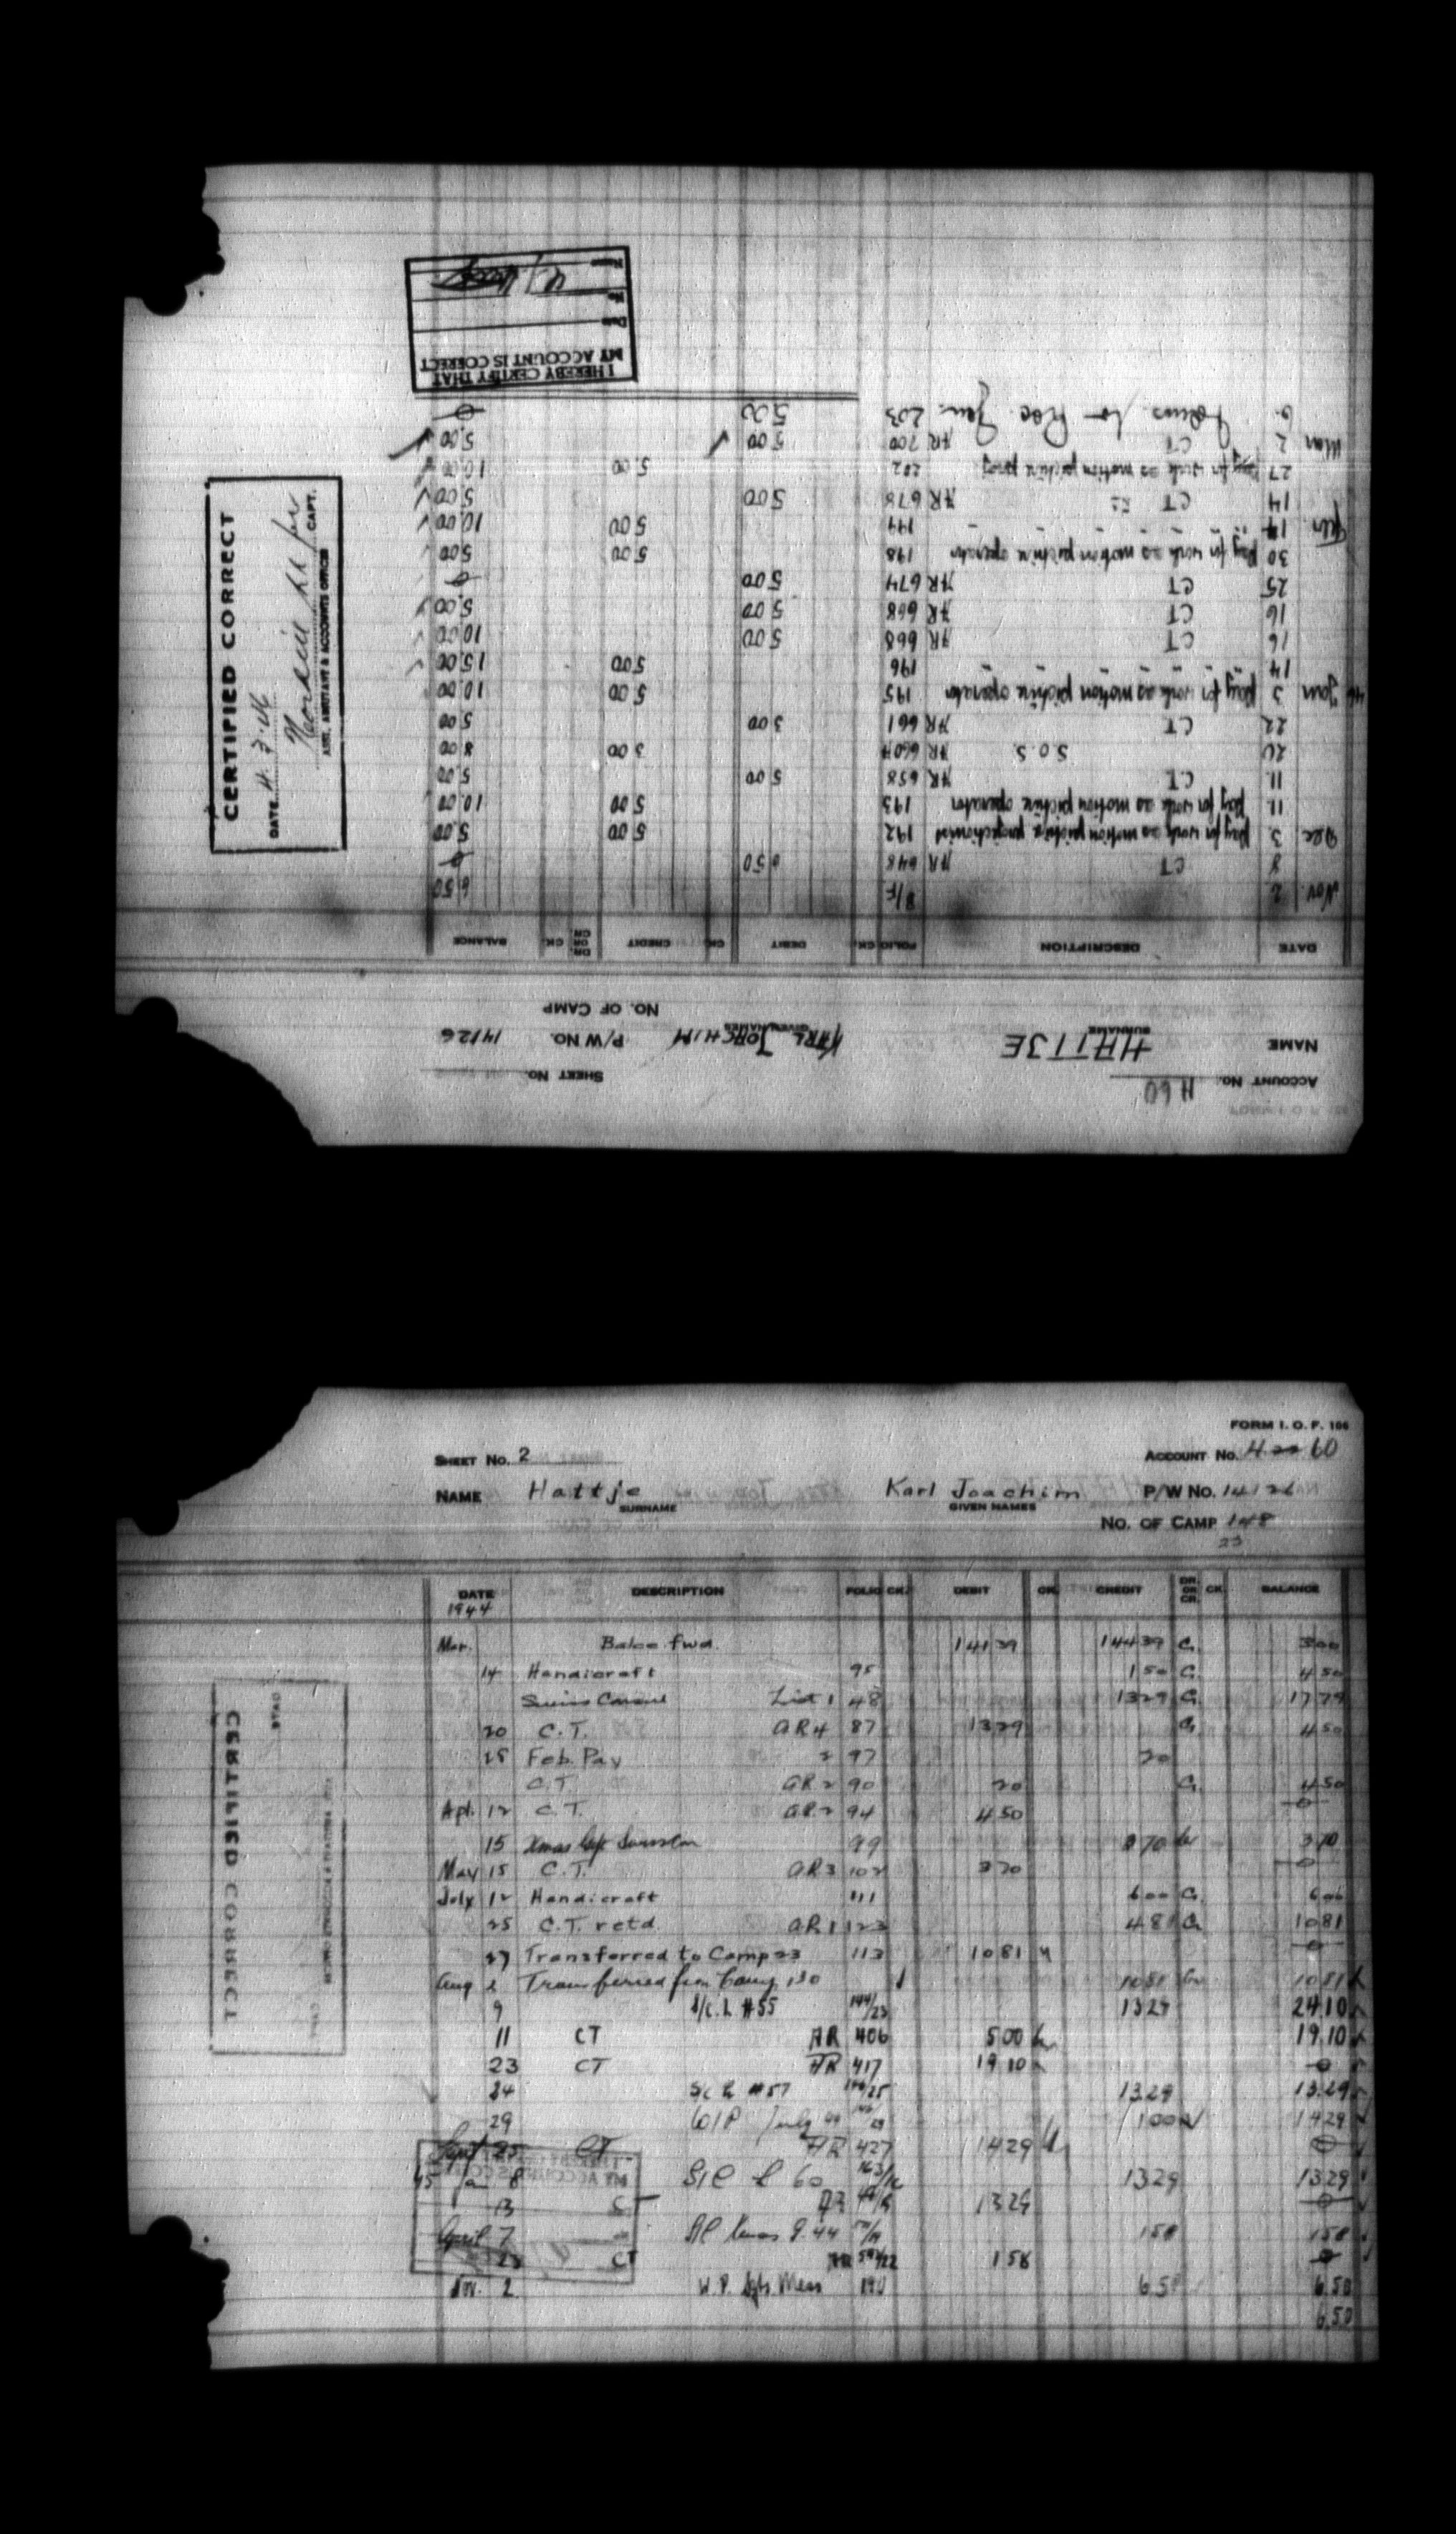 FORM I. O. F. 106
ACCOUNT NO. H 60
SHEET NO.
NAME HATTJE KARL JOACHIM P/W NO. 14126
SURNAME GIVEN NAMES
NO. OF CAMP
DATE DESCRIPTION FOLIO CK. DEBIT CK. CREDIT DR. OR CR. CK. BALANCE
Nov. 2 B/F 6 50
8 CT AR 648 6 50 0
Dec 3 Pay for work as motion picture projectionist 192 5 00 5.00
11 Pay for work as motion picture operator 193 5 00 10.00
11 CT AR 658 5 00 5.00
20 S.O.S. AR 660A 3 00 8 00
22 CT AR 661 3 00 5 00
46 Jan 3 Pay for work as motion picture operator 195 5 00 10.00
14 " " " " " " 196 5 00 15.00
16 CT AR 668 5 00 10.00
16 CT AR 668 5 00 5.00
25 CT AR 674 5 00 0
30 Pay for work as motion picture operator 198 5 00 5 00
Feb 14 " " " " " 199 5 00 10.00
14 CT AR 678 5 00 5.00
27 Pay for work as motion picture proj 202 5.00 10.00
Mar 2 CT AR 700 5 00 5.00
6 to Rec. Gen. 203 5.00 0
I HEREBY CERTIFY THAT
MY ACCOUNT IS CORRECT
Date
No.
Name
CERTIFIED CORRECT
DATE
CAPT.
ASST. ADJUTANT & ACCOUNTS OFFICER
FORM I. O. F. 106
SHEET NO. 2 ACCOUNT NO. H 60
NAME Hattje Karl Joachim P/W NO. 14126
SURNAME GIVEN NAMES
NO. OF CAMP 148
23
DATE DESCRIPTION FOLIO CK. DEBIT CK. CREDIT DR. OR CR. CK. BALANCE
1944
Mar. Balce fwd. 141 39 144 39 C. 3 00
14 Handicraft 95 1 50 C. 4 50
Swiss List 1 48 13 29 C. 17 79
20 C.T. AR 4 87 13 29 C. 4 50
25 Feb. Pay 2 97 20
C.T. AR 2 90 20 C. 4 50
Apl. 12 C.T. AR 2 94 4 50 0
15 Xmas Gift 99 3 70 Cr 3 70
May 15 C.T. AR 3 102 3 70 0
July 12 Handicraft 111 6 00 C. 6 00
25 C.T. retd. AR 1 123 4 81 Cr 10 81
27 Transferred to Camp 23 113 10 81 0
Aug 2 Transferred from Camp 130 10 81 Cr 10 81
9 S/C. L #55 144/23 13 29 24.10
11 CT AR 406 5 00 19.10
23 CT AR 417 19 10 0
24 S/C L #57 13.29 13.29
29 July 44 1 00 14 29
Sept 25 CT AR 427 14 29 0
45 Jan 8 S/C L 60 163/16 13 29 13 29
13 AR 13 29 0
April 7 S/C Xmas G. 44 1 58 1 58
23 CT AR 1 58 0
Nov. 2 W.P. Sgts Mess 190 6 50 6.50
6.50